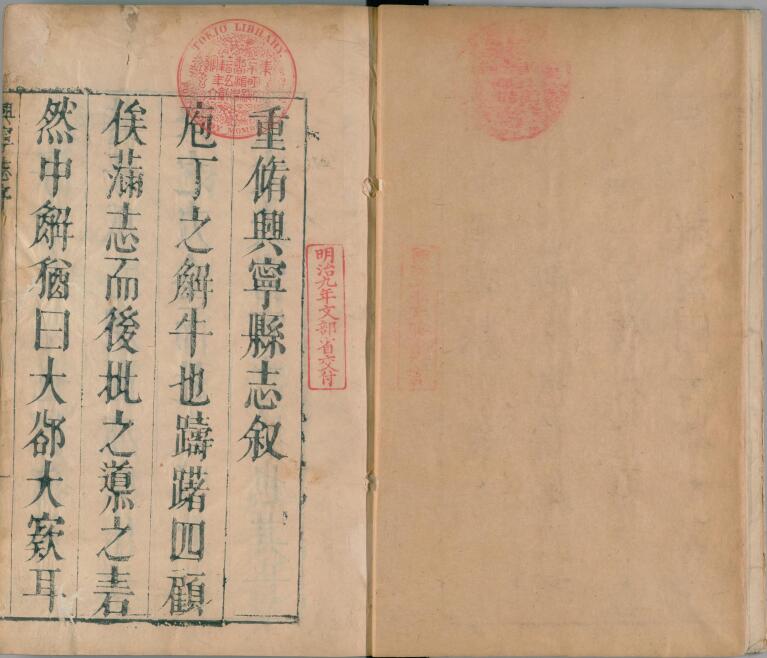 重脩興寧縣志叙
庖丁之解牛也躊躇四顧
俟滿志而後批之導之砉
然中解猶曰大郤大窾耳
明治九年文部省交付
TOKIO LIBRARY